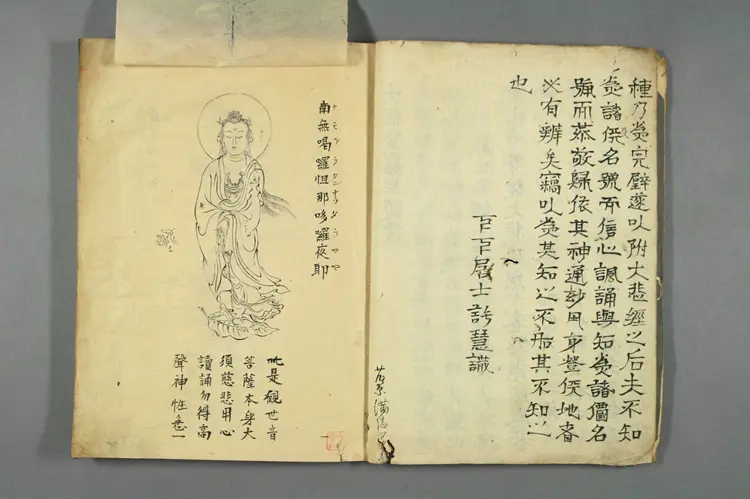 種乃為完璧遂以附大悲經之后夫不知
為諸佛名號而信心諷誦與知為諸名
號而恭敬歸依其神通妙用身登佛地者
必有辨矣竊以為其知之不如其不知之
也
居士慧識
南無喝囉怛那哆囉夜耶
此是觀世音
菩薩本身大
須慈悲用心
讀誦勿得高
聲神性急一